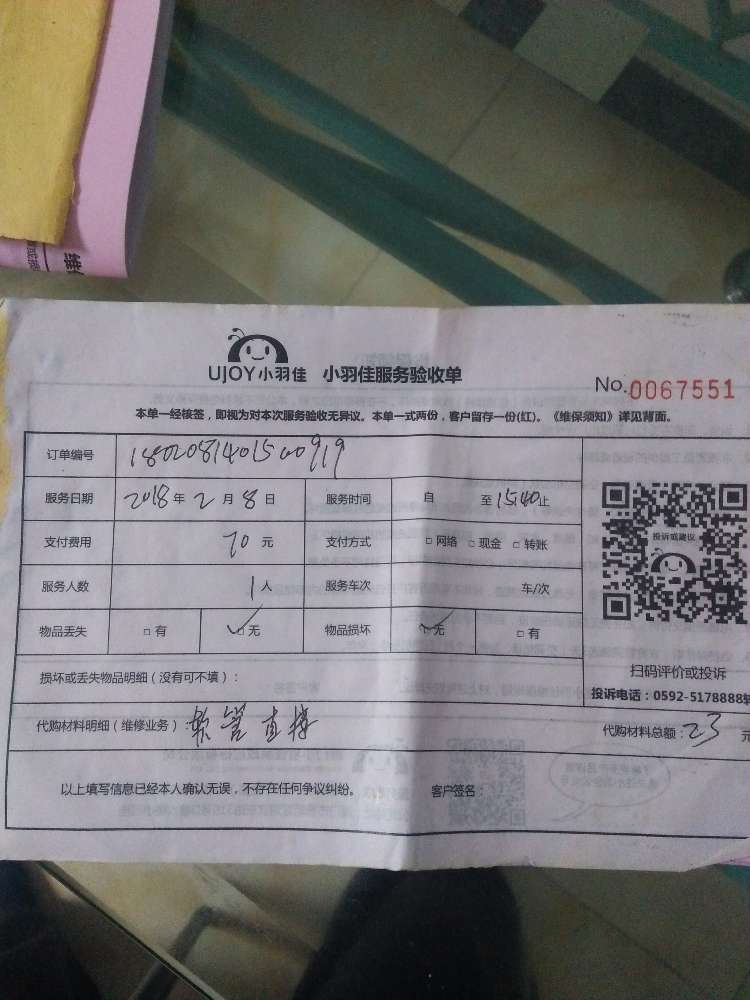 UJOY小羽佳 小羽佳服务验收单
No.0067551
本单一经核签，即视为对本次服务验收无异议。本单一式两份，客户留存一份(红)。《维保须知》详见背面。
订单编号 180208140150919
服务日期 2018年2月8日 服务时间 自 至15:40止
支付费用 70元 支付方式 □网络 □现金 □转账
投诉或建议
服务人数 1人 服务车次 车/次
物品丢失 □有 ☑无 物品损坏 ☑无 □有
扫码评价或投诉
损坏或丢失物品明细（没有可不填）：
投诉电话：0592-5178888转
代购材料明细（维修业务）：软管 直接
代购材料总额：23元
以上填写信息已经本人确认无误，不存在任何争议纠纷。 客户签名：